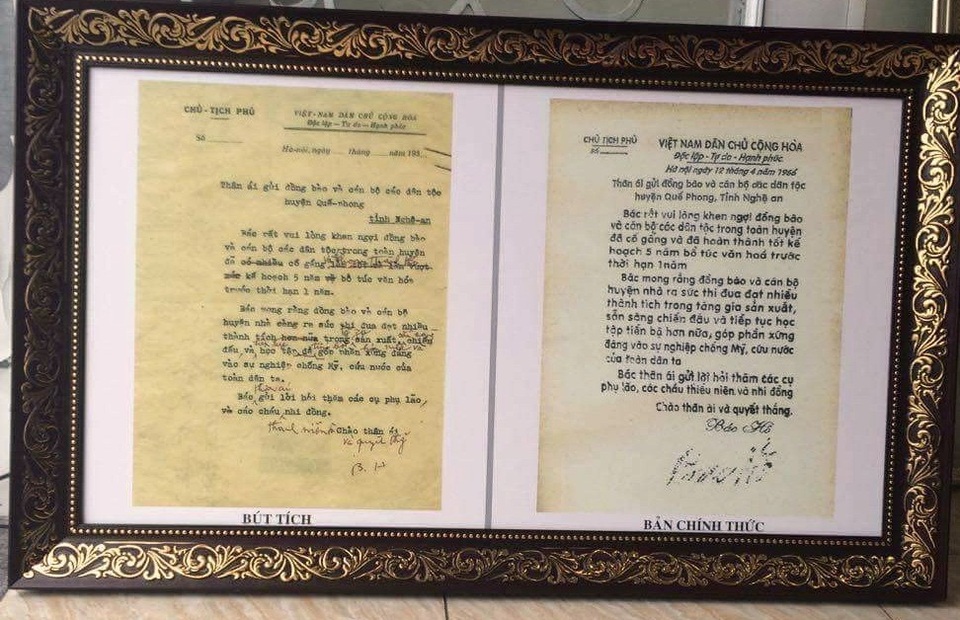 CHỦ-TỊCH PHỦ
VIỆT-NAM DÂN CHỦ CỘNG HÒA
Độc lập - Tự do - Hạnh phúc
Số
Hà-nội, ngày tháng năm 195
Thân ái gửi đồng bào và cán bộ các dân tộc
huyện Quế-phong
tỉnh Nghệ-an
Bác rất vui lòng khen ngợi đồng bào
và cán bộ các dân tộc trong toàn huyện
đã có nhiều cố gắng
kế hoạch 5 năm về bổ túc văn hóa
trước thời hạn 1 năm.
Bác mong rằng đồng bào và cán bộ
huyện nhà càng ra sức thi đua đạt nhiều
thành tích hơn nữa trong sản xuất, chiến
đấu, và học tập, để góp phần xứng đáng
vào sự nghiệp chống Mỹ, cứu nước của
toàn dân ta.
thân ái
Bác gửi lời hỏi thăm các cụ phụ lão,
và các cháu nhi đồng.
thanh niên Chào thân ái
và quyết thắng
B. H
BÚT TÍCH
CHỦ TỊCH PHỦ
VIỆT NAM DÂN CHỦ CỘNG HÒA
Số
Độc lập - Tự do - Hạnh phúc
Hà nội ngày 12 tháng 4 năm 1966
Thân ái gửi đồng bào và cán bộ các dân tộc
huyện Quế Phong, Tỉnh Nghệ an
Bác rất vui lòng khen ngợi đồng bào
và cán bộ các dân tộc trong toàn huyện
đã cố gắng và đã hoàn thành tốt kế
hoạch 5 năm bổ túc văn hoá trước
thời hạn 1 năm
Bác mong rằng đồng bào và cán bộ
huyện nhà ra sức thi đua đạt nhiều
thành tích trong tăng gia sản xuất,
sẵn sàng chiến đấu và tiếp tục học
tập tiến bộ hơn nữa, góp phần xứng
đáng vào sự nghiệp chống Mỹ, cứu nước
của toàn dân ta
Bác thân ái gửi lời hỏi thăm các cụ
phụ lão, các cháu thiếu niên và nhi đồng
Chào thân ái và quyết thắng.
Bác Hồ
BẢN CHÍNH THỨC